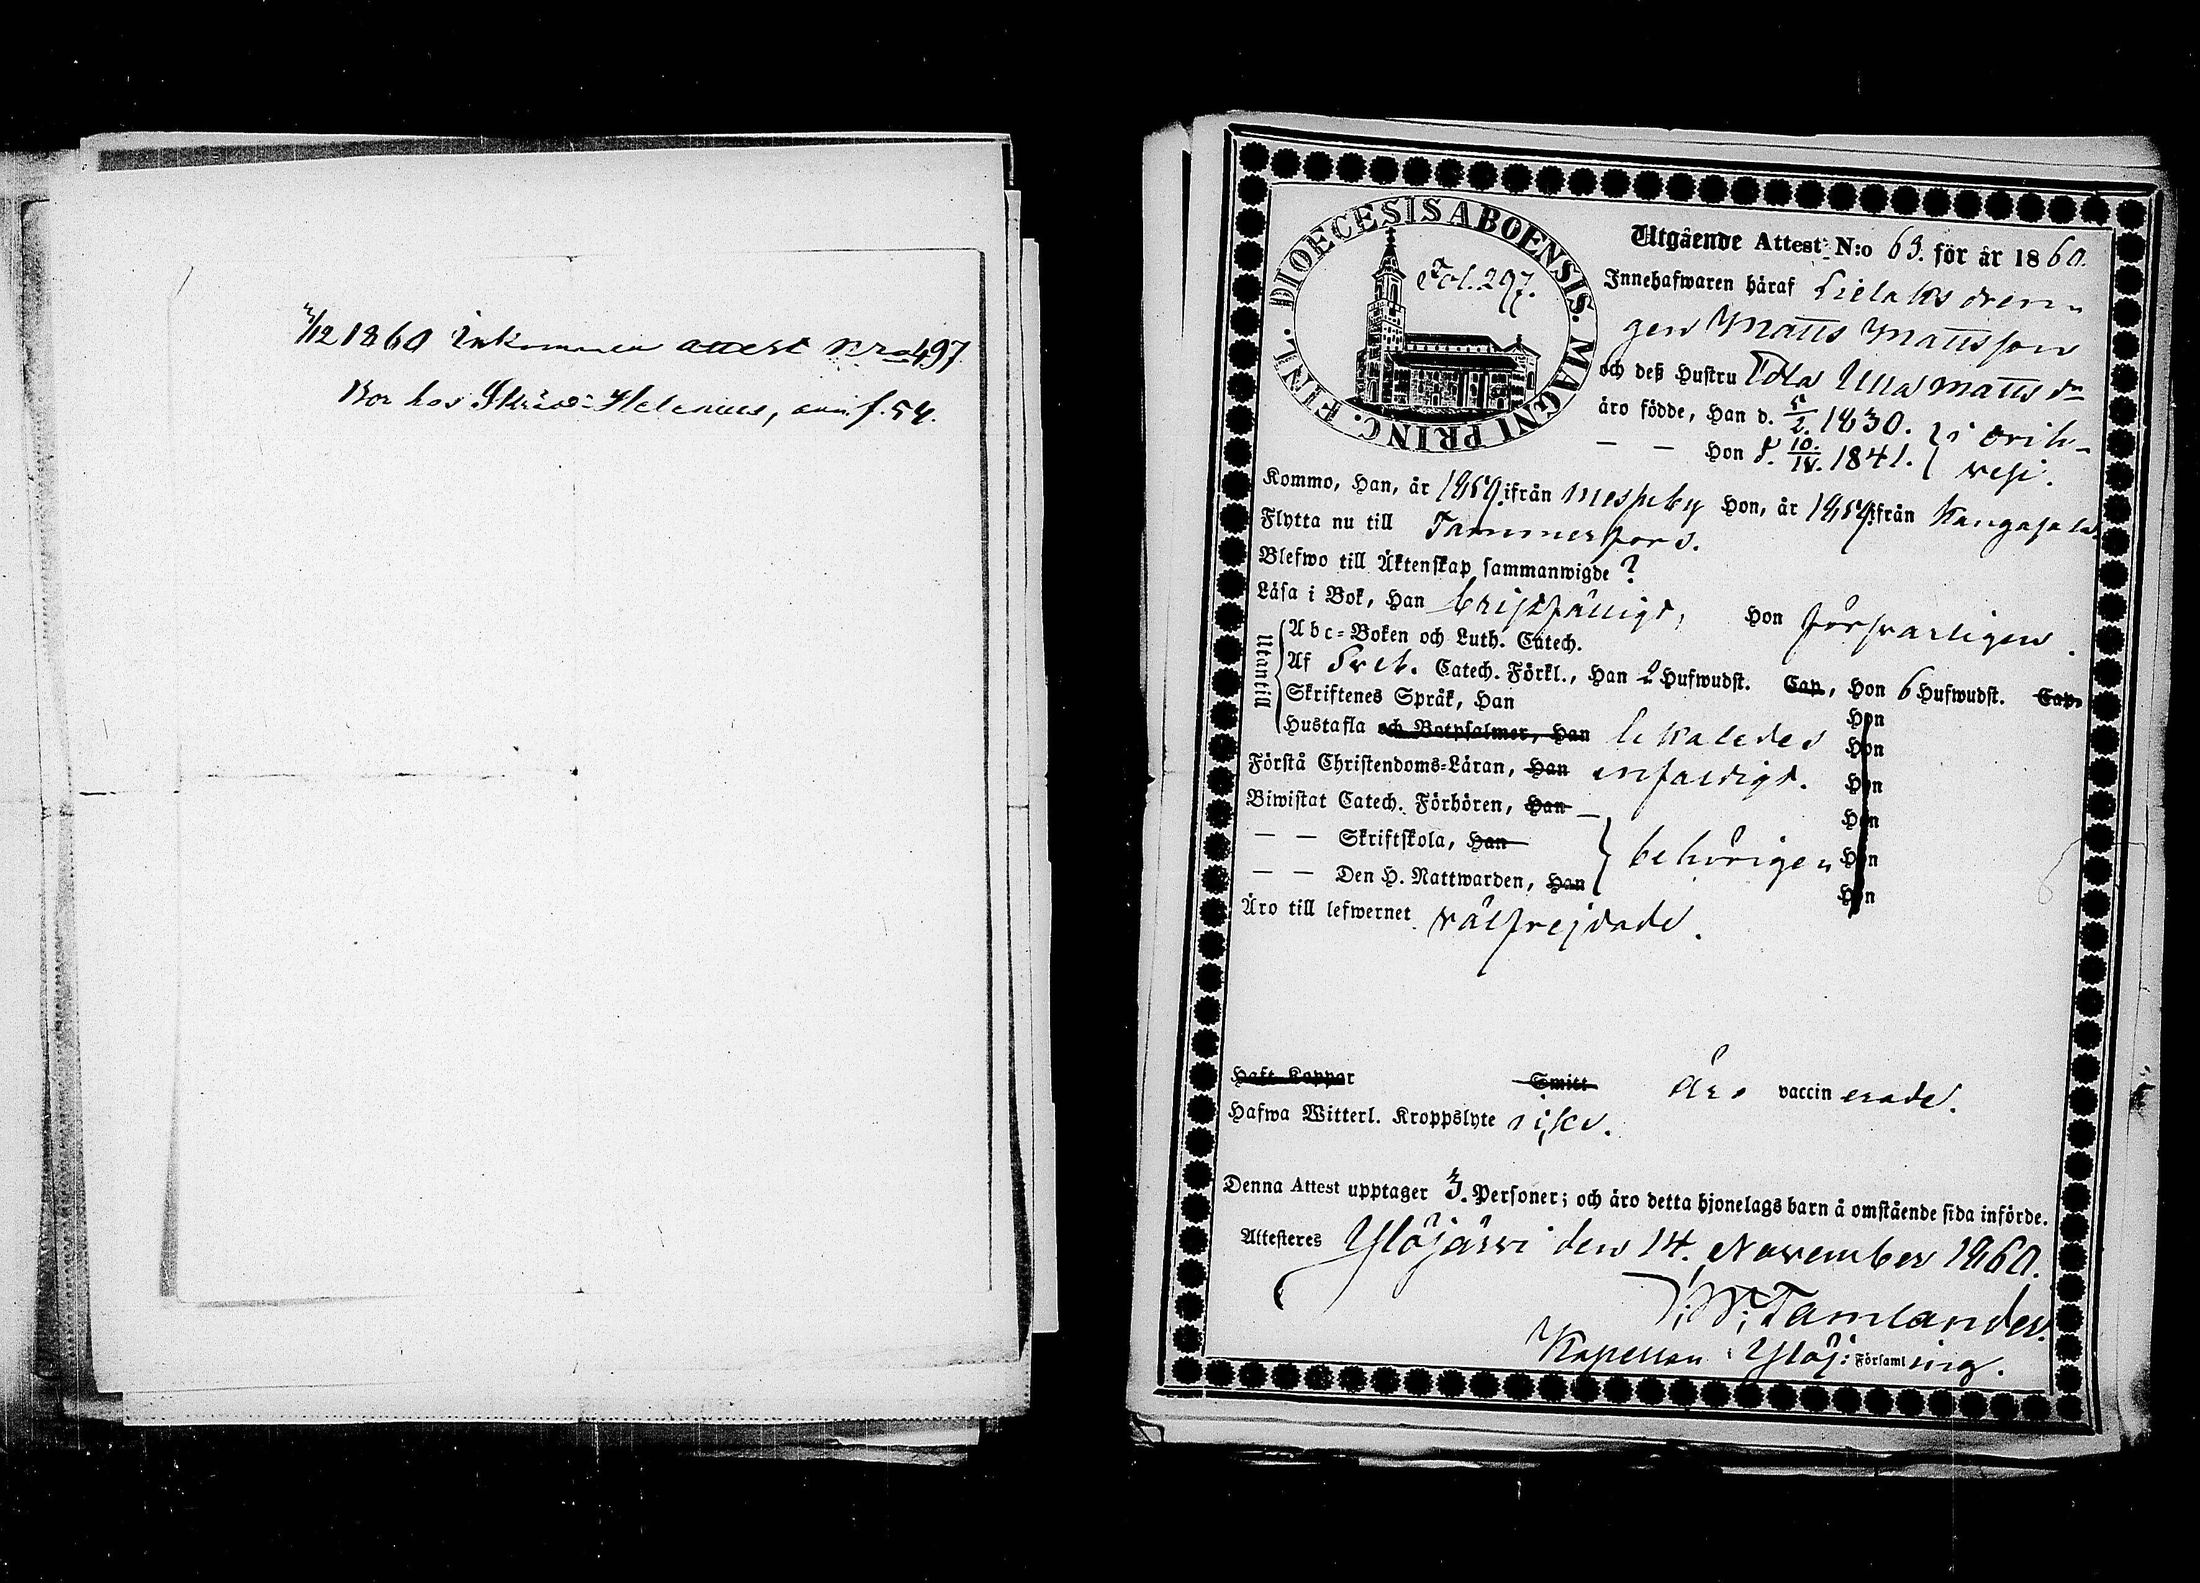 3/12 1860 Inkommen attest Nro 497
Bor hos Skräd: Helenius, ann. f. 54.
DIOECESIS ABOENSIS. MAGNI PRINC. FINL.
Fol. 297.
Utgående Attest N:o 63. för år 1860.
Innehafwaren häraf Lielaks dren-
gen Matts Mattsson
och deß Hustru Ulla Mattsdr
äro födde, Han d. 5/2. 1830. } i Orih-
— — Hon d. 10./IV. 1841. } vesi.
Kommo, Han, år 1859. ifrån Messuby Hon, år 1859. ifrån Kangasala
Flytta nu till Tammerfors.
Blefwo till Äktenskap sammanwigde ?
Läsa i Bok, Han bristfälligt, Hon försvarligen.
Utantill
Abc-Boken och Luth. Catech.
Af Sveb. Catech. Förkl., Han 2 Hufwudst. Cap, Hon 6 Hufwudst. Cap.
Skriftenes Språk, Han Hon
Hustafla och Botpsalmer, Han likaledes Hon
Förstå Christendoms-Läran, Han enfaldigt. Hon
Biwistat Catech. Förhören, Han Hon
— — Skriftskola, Han } behörigen Hon
— — Den H. Nattwarden, Han Hon
Äro till lefwernet välfrejdade.
Haft Koppor Smitt Äro vaccinerade.
Hafwa Witterl. Kroppslyte icke.
Denna Attest upptager 3. Personer; och äro detta hjonelags barn å omstående sida införde.
Attesteres Ylöjärvi den 14. November 1860.
Tamlander.
Kapellan i Ylöj: Församling.